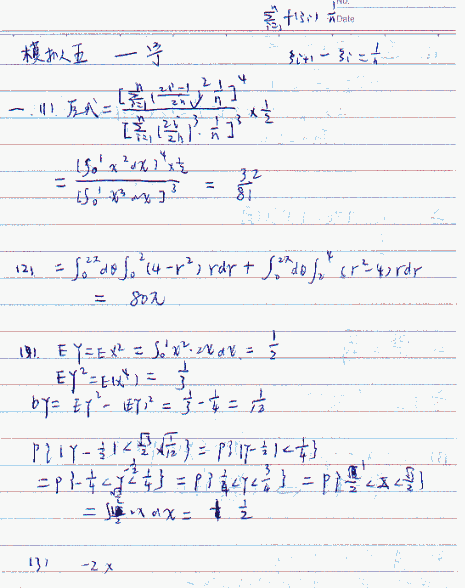 ∑_{i=1}^{n} f(ξi) 1/n
Date
模拟五 一学 ξ_{i+1} - ξ_i = 1/n
一. (1). 原式 = [∑_{i=1}^{n} (2i-1/2n)^2 1/n]^4 / [∑_{i=1}^{n} (2i/2n)^3 · 1/n]^3 × 1/2
= (∫_0^1 x^2 dx)^4 × 1/2 / [∫_0^1 x^3 dx]^3 = 32/81
(2) = ∫_0^{2π} dθ ∫_0^2 (4-r^2) r dr + ∫_0^{2π} dθ ∫_2^4 (r^2-4) r dr
= 80π
EY = EX^2 = ∫_0^1 x^2 · 2x dx = 1/2
EY^2 = E(X^4) = 1/3
DY = EY^2 - (EY)^2 = 1/3 - 1/4 = 1/12
P{|Y - 1/2| < √3/2 √(1/12)} = P{|Y - 1/2| < 1/4}
= P{-1/4 < Y - 1/2 < 1/4} = P{1/4 < Y < 3/4} = P{1/2 < X < √3/2}
= 2x dx = 1/2
(3) -2x